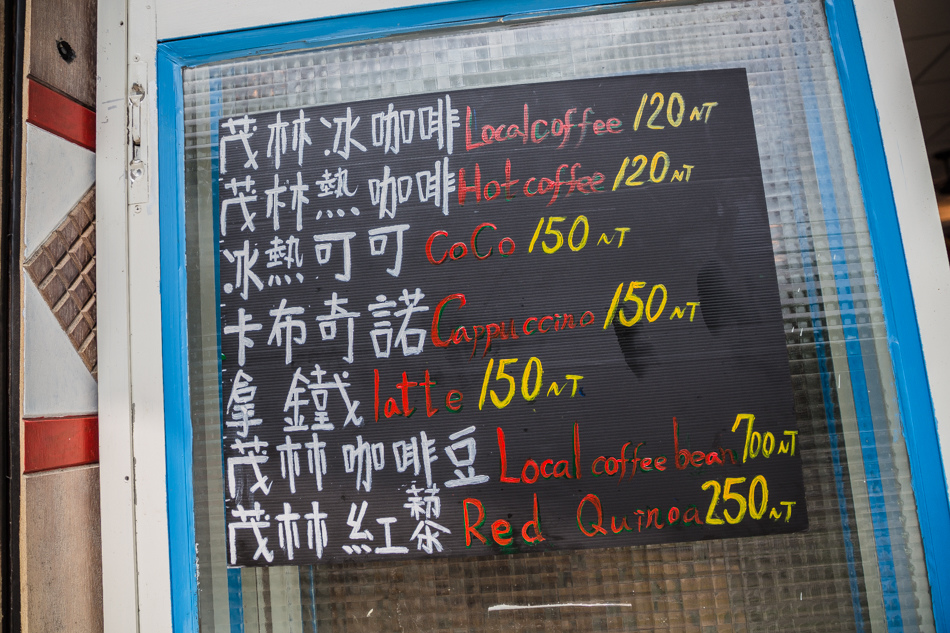 茂林冰咖啡 Local coffee 120 NT
茂林熱咖啡 Hot coffee 120 NT
冰熱可可 CoCo 150 NT
卡布奇諾 Cappuccino 150 NT
拿鐵 latte 150 NT
茂林咖啡豆 Local coffee bean 700 NT
茂林紅藜 Red Quinoa 250 NT